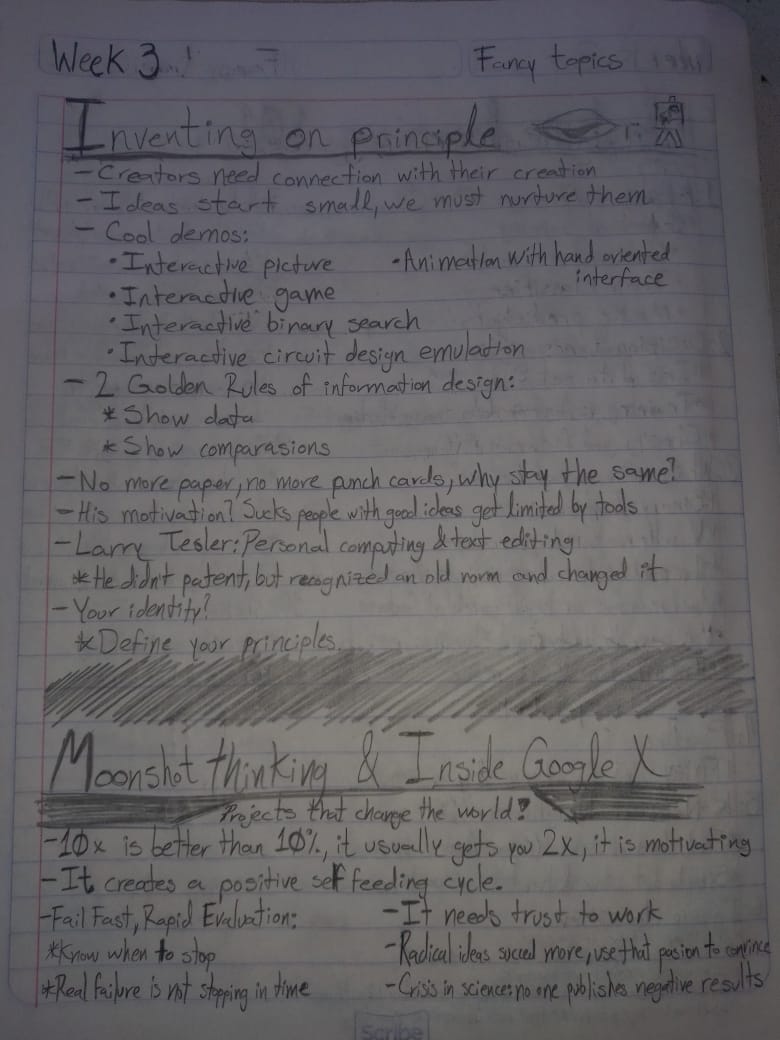 Week 3
Fancy topics
Inventing on principle
- Creators need connection with their creation
- Ideas start small, we must nurture them
- Cool demos:
• Interactive picture
• Animation with hand oriented
interface
• Interactive game
• Interactive binary search
• Interactive circuit design emulation
- 2 Golden Rules of information design:
* Show data
* Show comparasions
- No more paper, no more punch cards, why stay the same?
- His motivation? Sucks people with good ideas get limited by tools
- Larry Tesler: Personal computing & text editing
* He didn't patent, but recognized an old norm and changed it
- Your identity?
* Define your principles.
Moonshot thinking & Inside Google X
Projects that change the world!
- 10x is better than 10%, it usually gets you 2x, it is motivating
- It creates a positive self feeding cycle.
- Fail Fast, Rapid Evaluation:
* Know when to stop
* Real failure is not stopping in time
- It needs trust to work
- Radical ideas succed more, use that pasion to convince
- Crisis in science: no one publishes negative results
Scribe